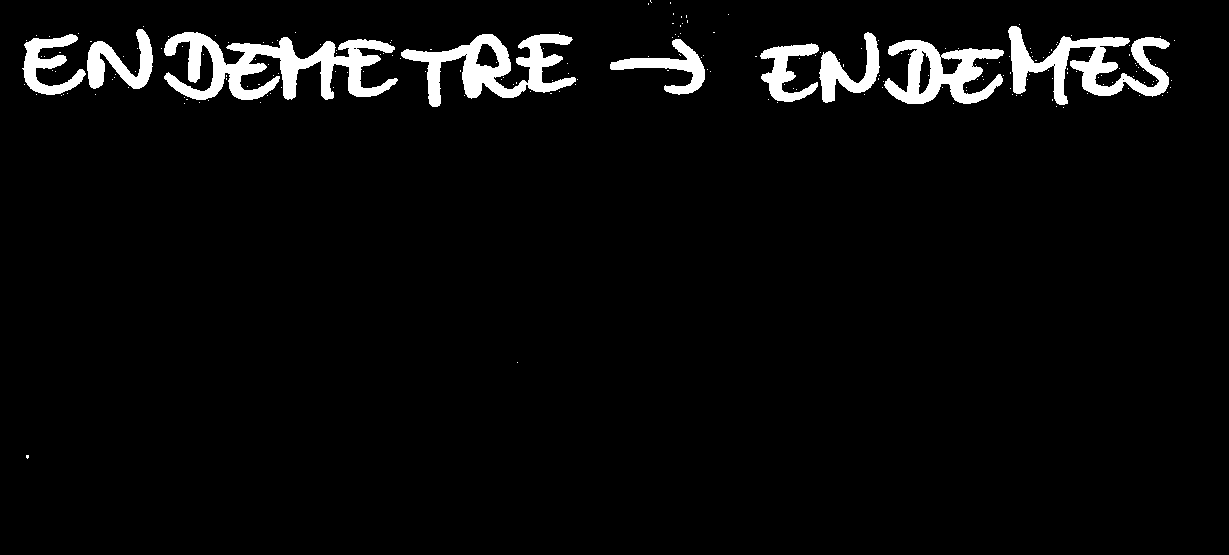 ENDEMETRE → ENDEMES